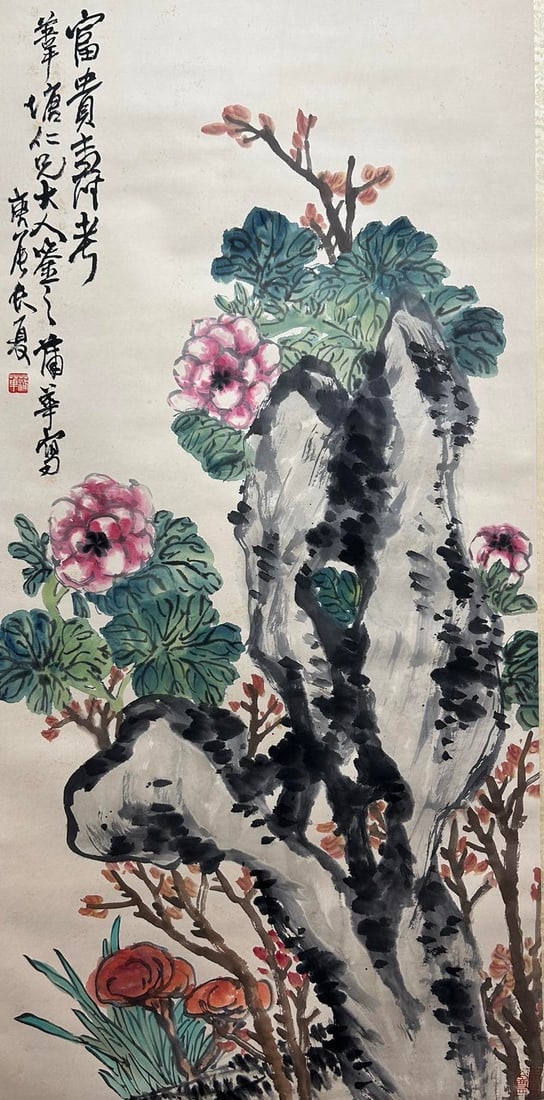 富貴壽考
華塘仁兄大人鑒之蒲華寫
庚辰長夏